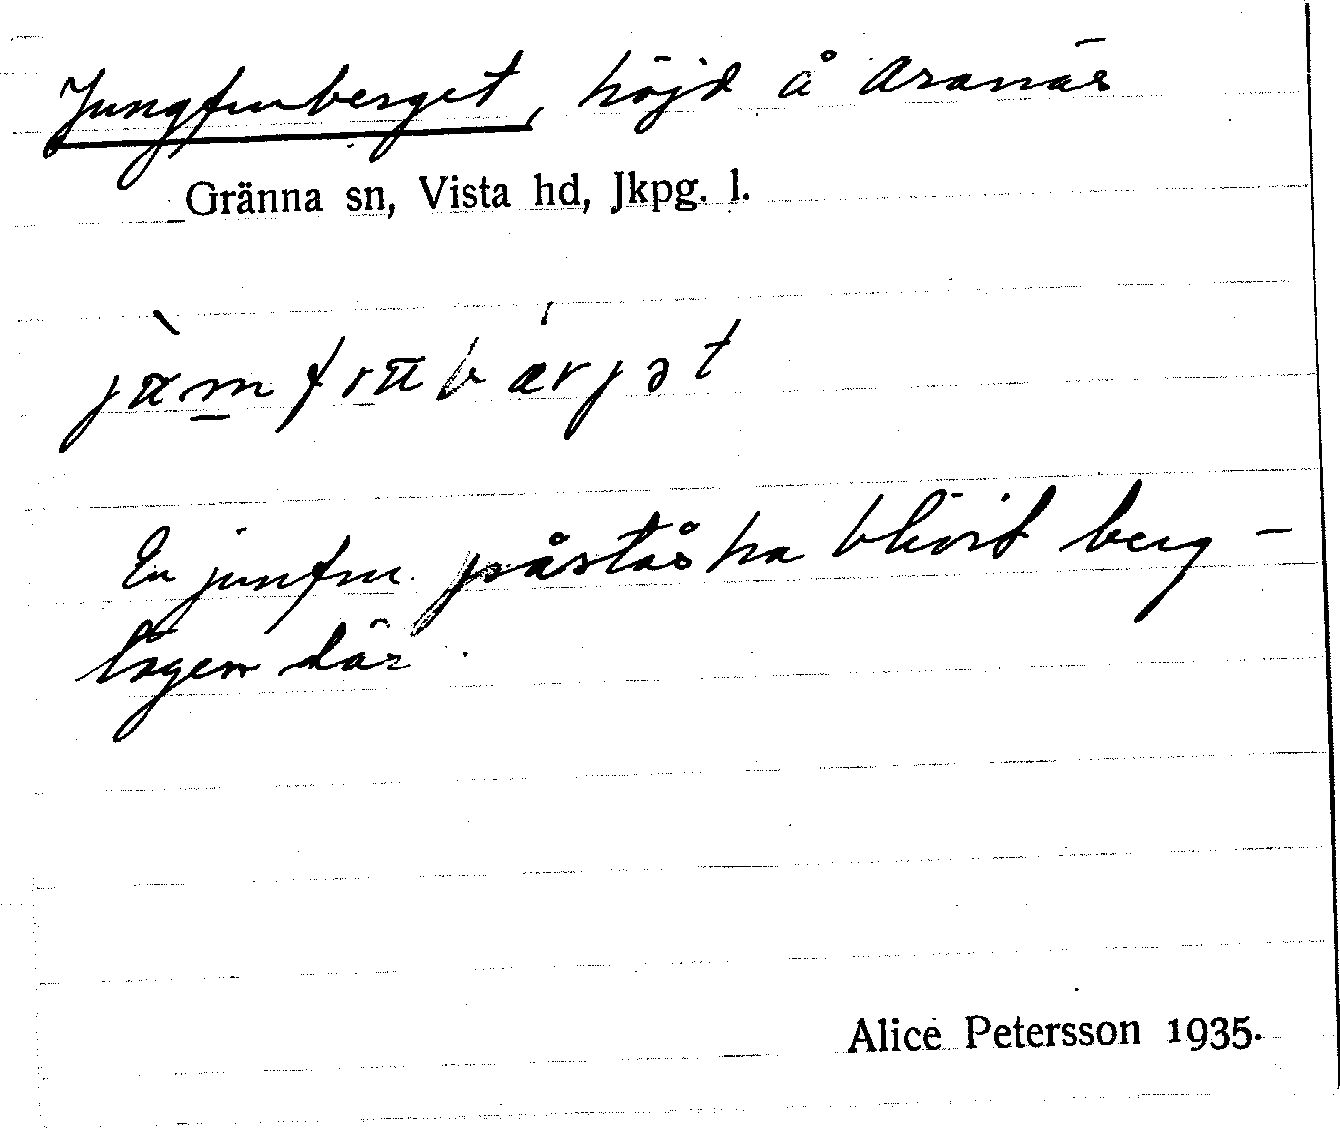 Jungfruberget, höjd å Aranäs
Gränna sn, Vista hd, Jkpg. l.
jɯ̀m frɯbærjət
En junfru påstås ha blivit berg-
tagen där.
Alice Petersson 1935.